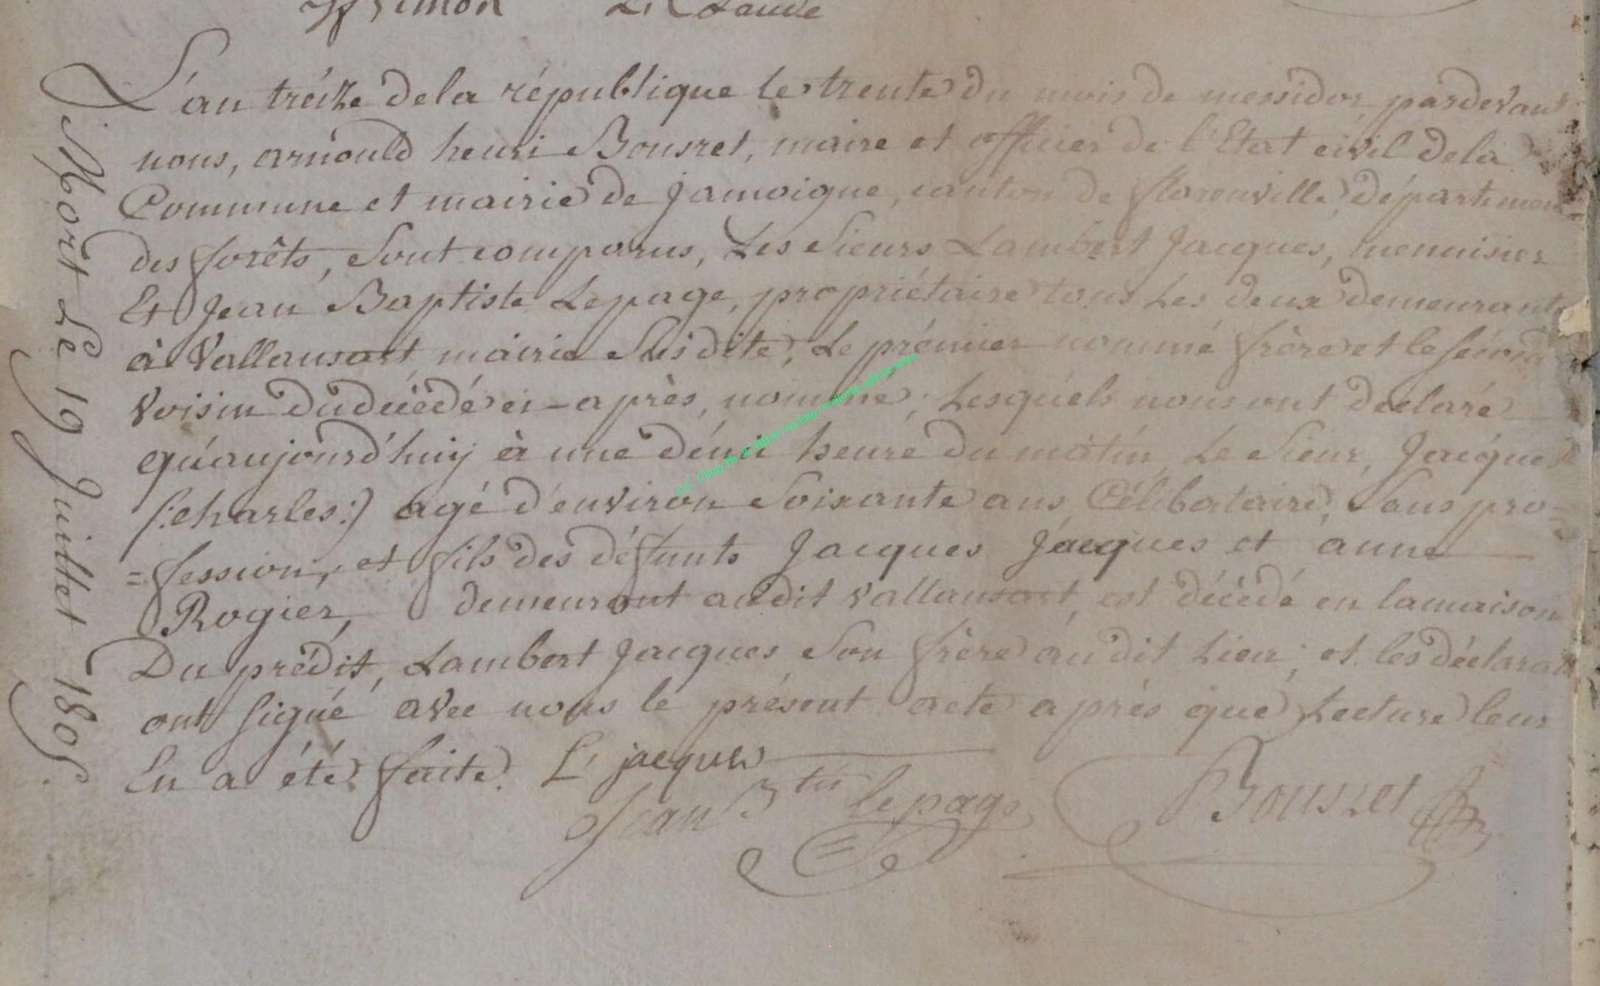 L'an tréize dela république le trente du mois de messidor, pardevant
nous, arnould henri Bousret, maire et officier de l'Etat civil dela
Commune et mairie de Jamoigne, canton de florenville, département
des forêts, Sont comparus, Les Sieurs Lambert Jacques, menuisier
Et Jean Baptiste Lepage, propriétaire tous Les deux demeurants
à Vallansart mairie Susdite, Le prémier nommé frère et le second
Voisin du décédé ci-après, nommé, Lesquels nous ont déclaré
qu'aujourd'huy à une démi heure du matin, Le Sieur, Jacques
(:charles:) agé d'environ Soixante ans, Célibataire, Sans pro=
=fession, et fils des défunts Jacques Jacques et anne
Rogier, demeurant audit vallansart, est décédé en lamaison
Du prédit, Lambert Jacques Son frère audit Lieu; et les déclarants
ont signé avec nous le présent acte après que Lecture leur
En a été faite. L. jacques
Jean Btte lepage Bousret
Mort Le 19 Juillet 1805.